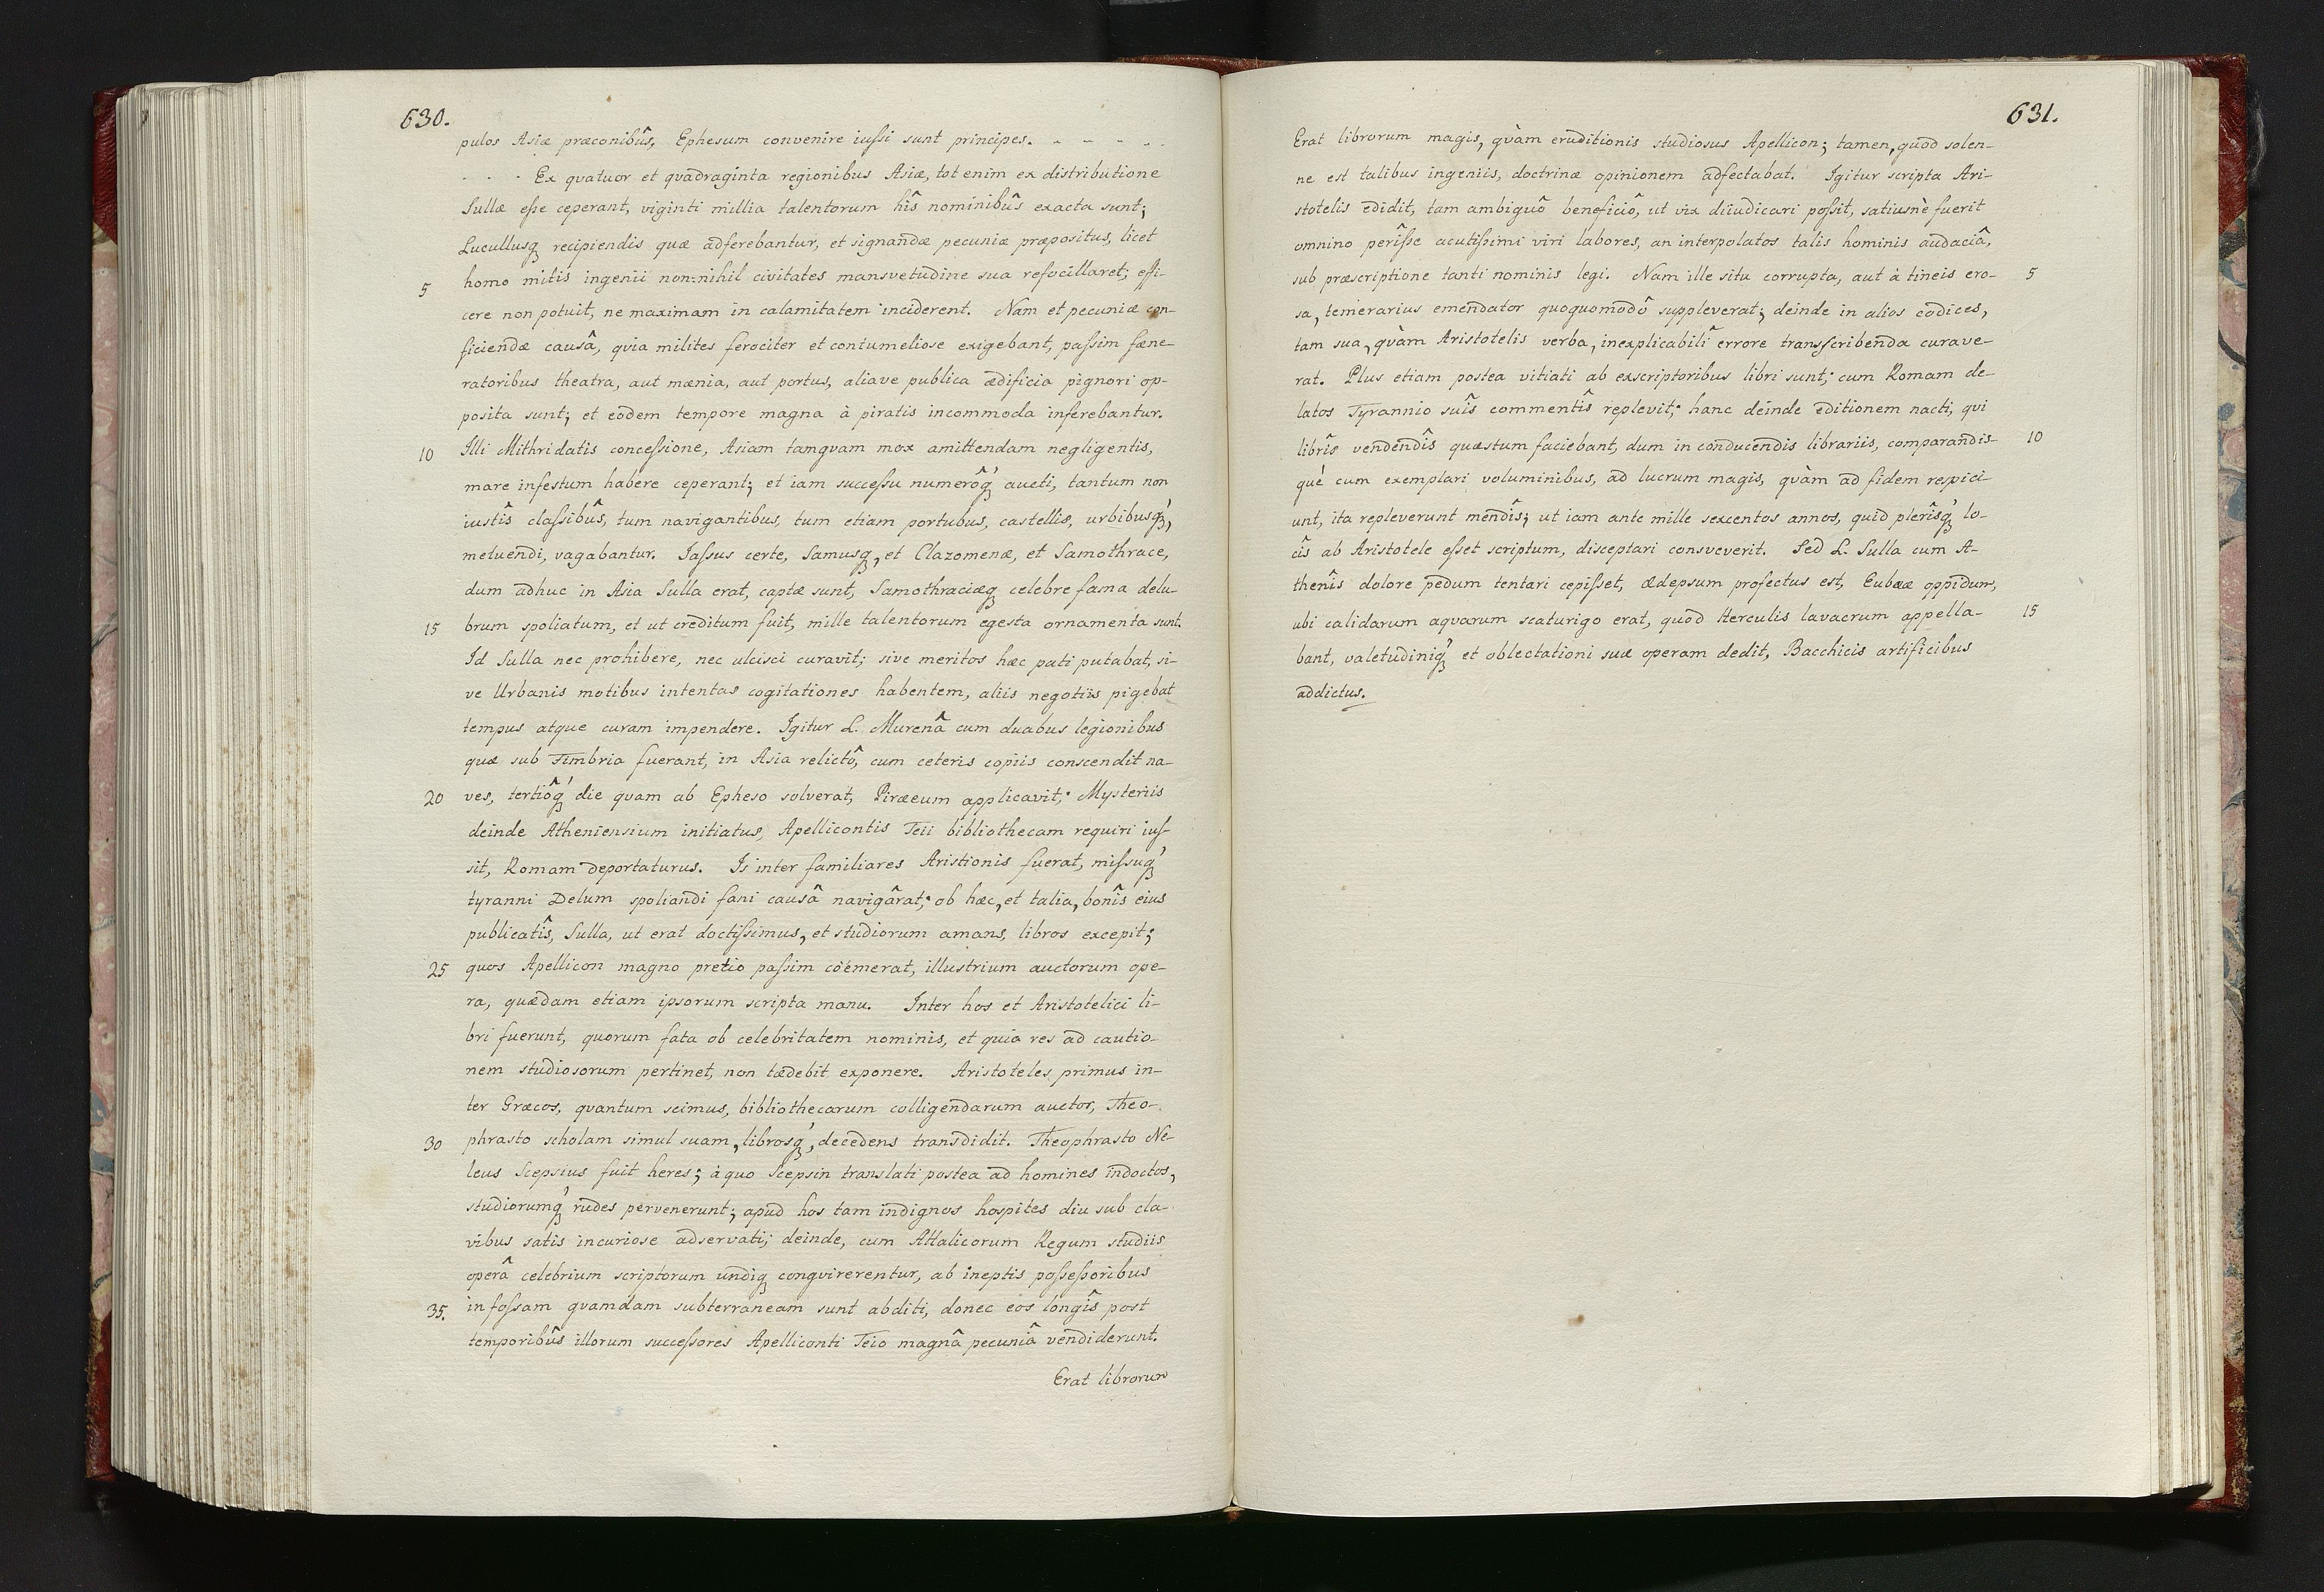 630.
pulos Asiæ præconibûs, Ephesum convenire iuſsi sunt principes. - - - - -
- - - Ex qvatuor et qvadraginta regionibus Asiæ, tot enim ex distributione
Sullæ eſse ceperant, viginti millia talentorum hîs nominibûs exacta sunt;
Lucullusq recipiendis quæ adferebantur, et signandæ pecuniæ præpositus, licet
5 homo mitis ingenii non-nihil civitates mansvetudine sua refocillaret; effi-
cere non potuit, ne maximam in calamitatem inciderent. Nam et pecuniæ con-
ficiendæ causâ, qvia milites ferociter et contumeliose exigebant, paſsim fæne-
ratoribus theatra, aut mænia, aut portus, aliave publica ædificia pignori op-
posita sunt; et eodem tempore magna à piratis incommoda inferebantur.
10 Illi Mithridatis conceſsione, Asiam tamqvam mox amittendam negligentis,
mare infestum habere ceperant; et iam succeſsu numerôq́ aucti, tantum non
iustîs claſsibûs, tum navigantibus, tum etiam portubus, castellis, urbibusq́,
metuendi, vagabantur. Iaſsus certe, Samusq, et Clazomenæ, et Samothrace,
dum adhuc in Asia Sulla erat, captæ sunt, Samothraciæq celebre fama delu-
15 brum spoliatum, et ut creditum fuit, mille talentorum egesta ornamenta sunt.
Id Sulla nec prohibere, nec ulcisci curavit; sive meritos hæc pati putabat, si-
ve Urbanis motibus intentas cogitationes habentem, aliis negotiis pigebat
tempus atque curam impendere. Igitur L. Murenâ cum duabus legionibus
quæ sub Fimbria fuerant, in Asia relictô, cum ceteris copiis conscendit na-
20 ves, tertiôq́ die qvam ab Epheso solverat, Piræeum applicavit; Mysteriis
deinde Atheniensium initiatus, Apellicontis Teii bibliothecam requiri iuſ-
sit, Romam deportaturus. Is inter familiares Aristionis fuerat, miſsuq́
tyranni Delum spoliandi fani causâ navigârat; ob hæc, et talia, bonîs eius
publicatîs, Sulla, ut erat doctiſsimus, et studiorum amans, libros excepit;
25 quos Apellicon magno pretio paſsim coëmerat, illustrium auctorum ope-
ra, quædam etiam ipsorum scripta manu. Inter hos et Aristotelici li-
bri fuerunt, quorum fata ob celebritatem nominis, et quia res ad cautio-
nem studiosorum pertinet, non tædebit exponere. Aristoteles primus in-
ter Græcos, qvantum scimus, bibliothecarum colligendarum auctor, Theo-
30 phrasto scholam simul suam, librosq́, decedens transdidit. Theophrasto Ne-
leus Scepsius fuit heres; à quo Scepsin translati postea ad homines indoctos,
studiorumq́ rudes pervenerunt; apud hos tam indignos hospites diu sub cla-
vibus satis incuriose adservati; deinde, cum Attalicorum Regum studiis
operâ celebrium scriptorum undiq conqvirerentur, ab ineptis poſseſsoribus
35. in foſsam qvamdam subterraneam sunt abditi, donec eos longîs post
temporibûs illorum succeſsores Apelliconti Teio magnâ pecuniâ vendiderunt.
Erat librorum
631.
Erat librorum magis, qvàm eruditionis studiosus Apellicon; tamen, quod solen-
ne est talibus ingeniis, doctrinæ opinionem adfectabat. Igitur scripta Ari-
stotelis edidit, tam ambiguô beneficiô, ut vix diiudicari poſsit, satiusnè fuerit
omnino periſse acutiſsimi viri labores, an interpolatos talis hominis audaciâ,
sub præscriptione tanti nominis legi. Nam ille situ corrupta, aut à tineis ero- 5
sa, temerarius emendator quoquomodô suppleverat; deinde in alios codices,
tam sua, qvàm Aristotelis verba, inexplicabilî errore transſcribenda curave-
rat. Plus etiam postea vitiati ab exscriptoribus libri sunt; cum Romam de-
latos Tyrannio suîs commentîs replevit; hanc deinde editionem nacti, qvi
librîs vendendîs quæstum faciebant, dum in conducendis librariis, comparandis- 10
què cum exemplari voluminibus, ad lucrum magis, qvàm ad fidem respici-
unt, ita repleverunt mendîs; ut iam ante mille sexcentos annos, quid plerîsq́ lo-
cîs ab Aristotele eſset scriptum, disceptari consveverit. Sed L. Sulla cum A-
thenîs dolore pedum tentari cepiſset, Ædepsum profectus est, Eubææ oppidum,
ubi calidarum aqvarum scaturigo erat, quod Herculis lavacrum appella- 15
bant, valetudiniq́ et oblectationi suæ operam dedit, Bacchicis artificibus
addictus.